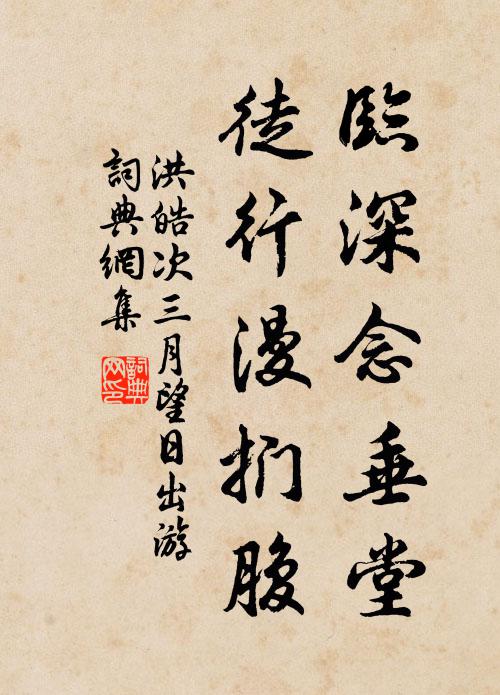 臨深念垂堂
徒行漫捫腹
洪皓次三月望日出游
詞典網集
詞典
网印